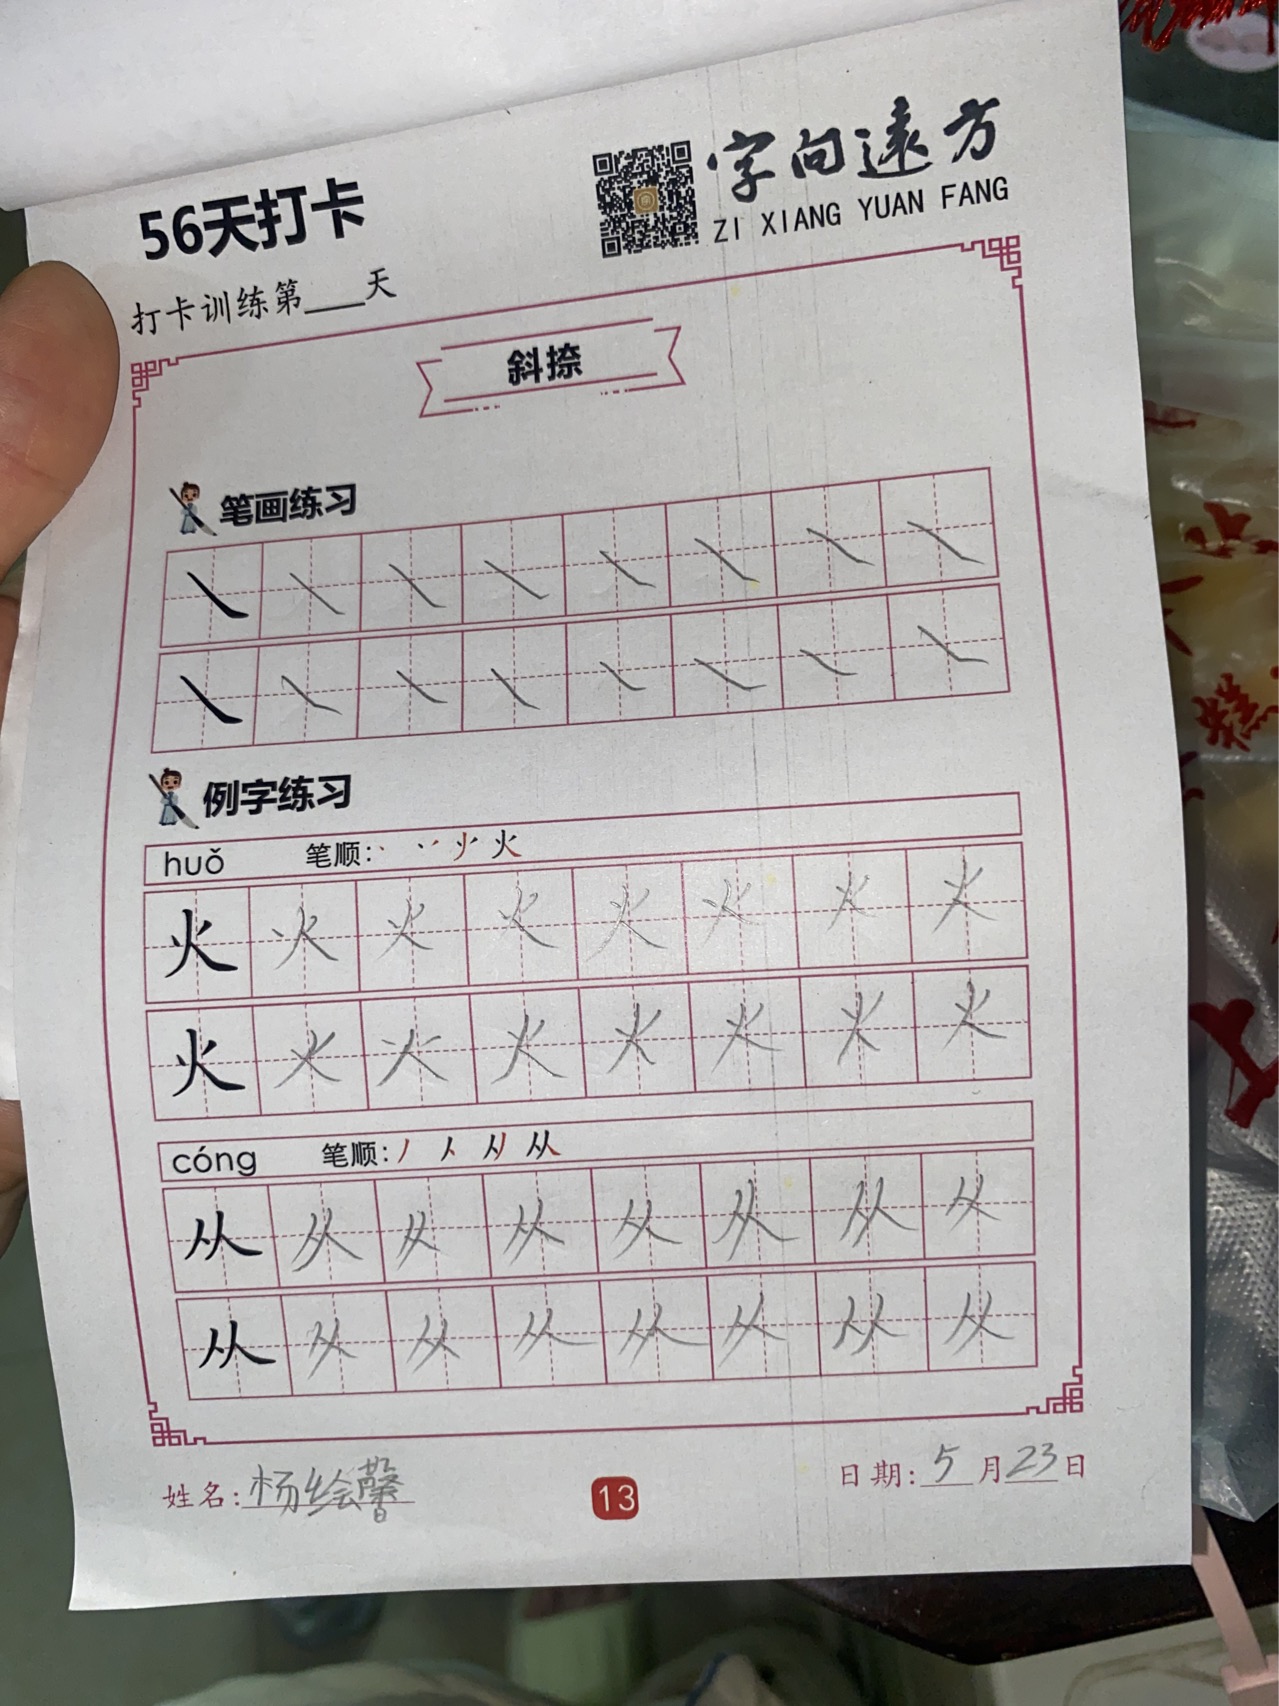 56天打卡
字向遠方
ZI XIANG YUAN FANG
打卡训练第___天
斜捺
笔画练习
㇏ ㇏ ㇏ ㇏ ㇏ ㇏ ㇏ ㇏
㇏ ㇏ ㇏ ㇏ ㇏ ㇏ ㇏ ㇏
例字练习
huǒ 笔顺: 火
火 火 火 火 火 火 火 火
火 火 火 火 火 火 火 火
cóng 笔顺: 丿 人 从
从 从 从 从 从 从 从 从
从 从 从 从 从 从 从 从
姓名: 杨绘馨
13
日期: 5月23日